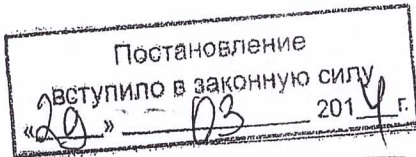 Постановление
вступило в законную силу
«29» 03 2014 г.